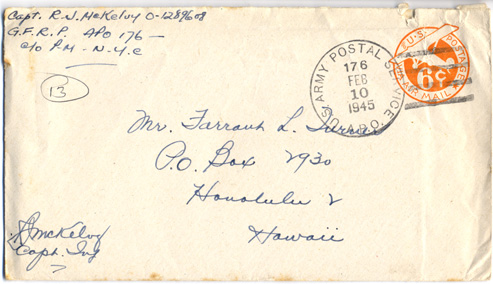 Capt. R. J. McKelvy O-1289608
G.F.R.P. APO 176 —
c/o P.M. - N.Y.C
13
U.S. ARMY POSTAL SERVICE
176
FEB
10
1945
A.P.O.
U.S. POSTAGE
6¢
VIA AIR MAIL
Mr. Farrant L.
P.O. Box 2930
Honolulu 2
Hawaii
McKelvy
Capt. Inf